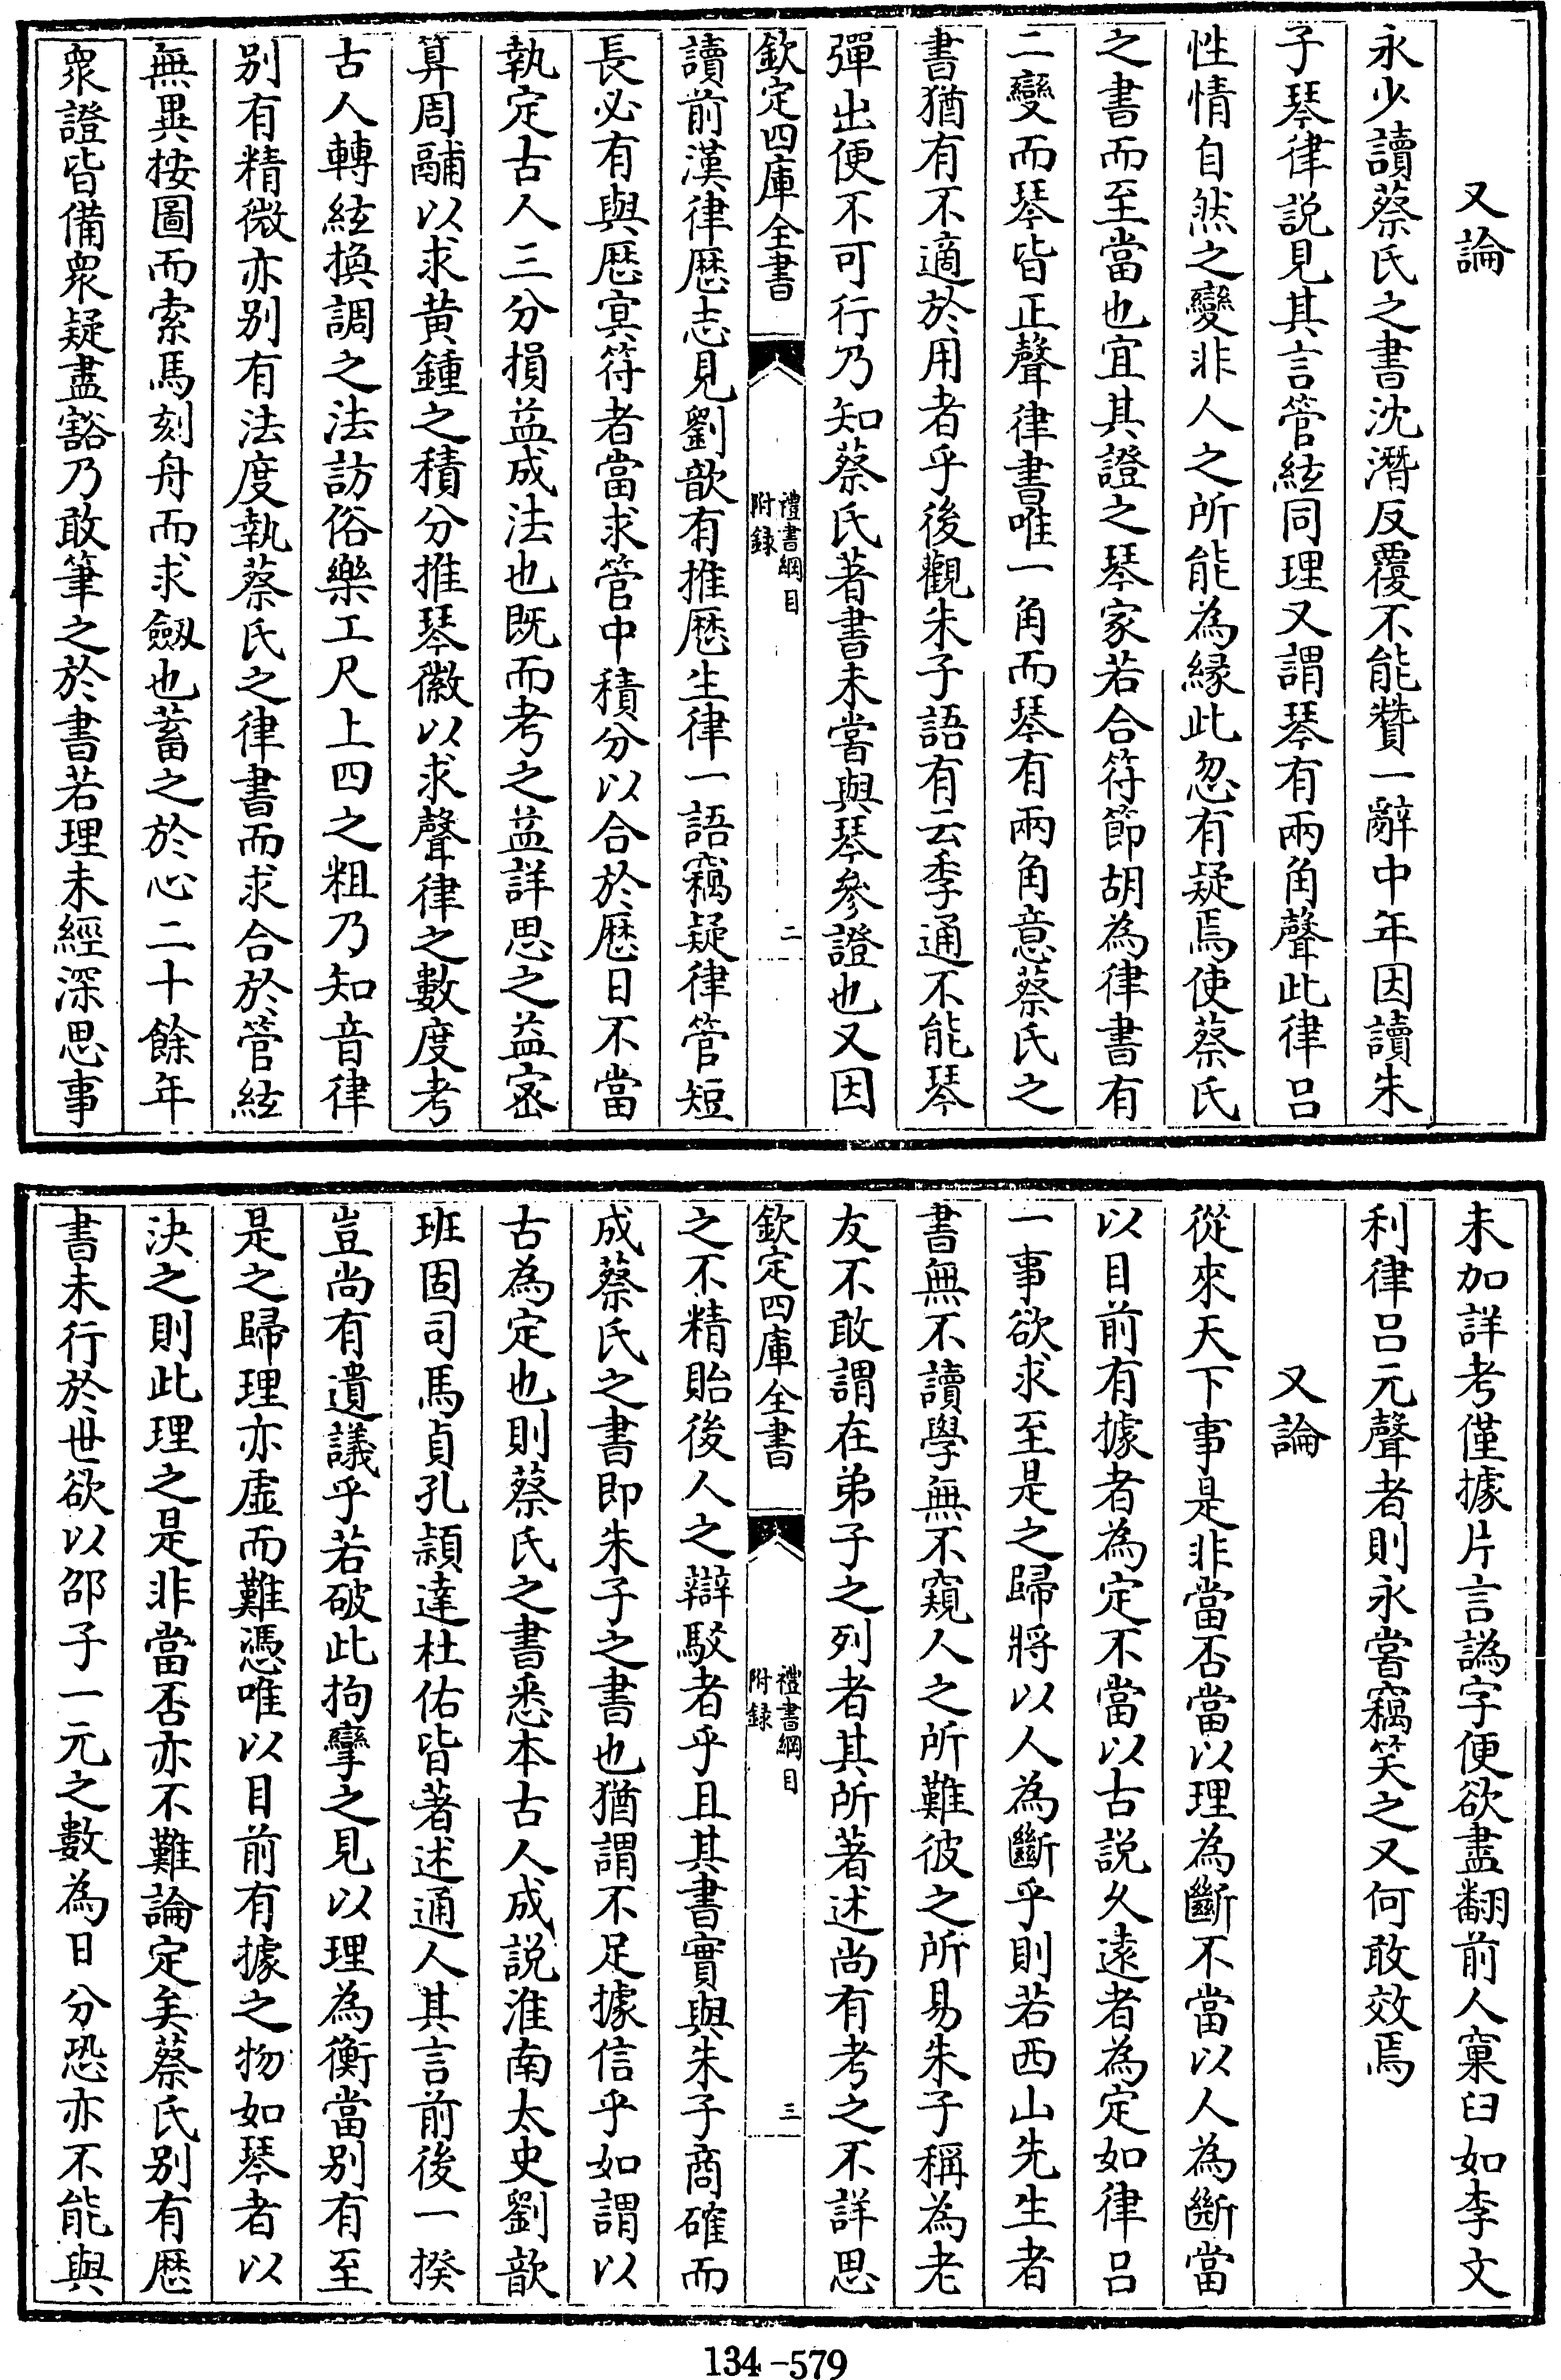 又論
永少讀蔡氏之書沈潛反覆不能贊一辭中年因讀朱
子琴律説見其言管絃同理又謂琴有兩角聲此律吕
性情自然之變非人之所能為縁此忽有疑焉使蔡氏
之書而至當也宜其證之琴家若合符節胡為律書有
二變而琴皆正聲律書唯一角而琴有兩角意蔡氏之
書猶有不適於用者乎後觀朱子語有云季通不能琴
彈出便不可行乃知蔡氏著書未嘗與琴參證也又因
欽定四庫全書
禮書綱目
附録
二
讀前漢律厯志見劉歆有推厯生律一語竊疑律管短
長必有與厯㝠符者當求管中積分以合於厯日不當
執定古人三分損益成法也既而考之益詳思之益宻
算周鬴以求黄鍾之積分推琴徽以求聲律之數度考
古人轉絃換調之法訪俗樂工尺上四之粗乃知音律
别有精微亦别有法度執蔡氏之律書而求合於管絃
無異按圖而索馬刻舟而求劔也蓄之於心二十餘年
衆證皆備衆疑盡豁乃敢筆之於書若理未經深思事
未加詳考僅據片言譌字便欲盡翻前人窠臼如李文
利律吕元聲者則永嘗竊笑之又何敢效焉
又論
從來天下事是非當否當以理為斷不當以人為斷當
以目前有據者為定不當以古説久遠者為定如律吕
一事欲求至是之歸將以人為斷乎則若西山先生者
書無不讀學無不窺人之所難彼之所易朱子稱為老
友不敢謂在弟子之列者其所著述尚有考之不詳思
欽定四庫全書
禮書綱目
附録
三
之不精貽後人之辯駁者乎且其書實與朱子商確而
成蔡氏之書即朱子之書也猶謂不足據信乎如謂以
古為定也則蔡氏之書悉本古人成説淮南太史劉歆
班固司馬貞孔頴達杜佑皆著述通人其言前後一揆
豈尚有遺議乎若破此拘攣之見以理為衡當别有至
是之歸理亦虚而難憑唯以目前有據之物如琴者以
決之則此理之是非當否亦不難論定矣蔡氏别有厯
書未行於世欲以邵子一元之數為日分恐亦不能與
134-579